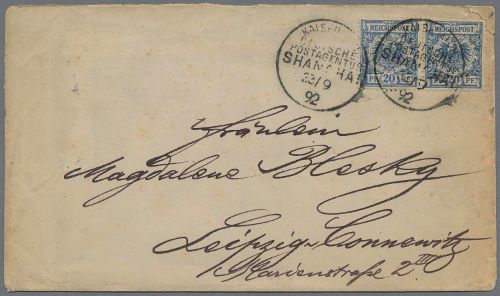 KAISERL.
DEUTSCHE
POSTAGENTUR
SHANGHAI
23/9
92
REICHSPOST
20 PF
REICHSPOST
20 PF
Fräulein
Magdalene Blesky
Leipzig-Connewitz
Marienstraße 2 III